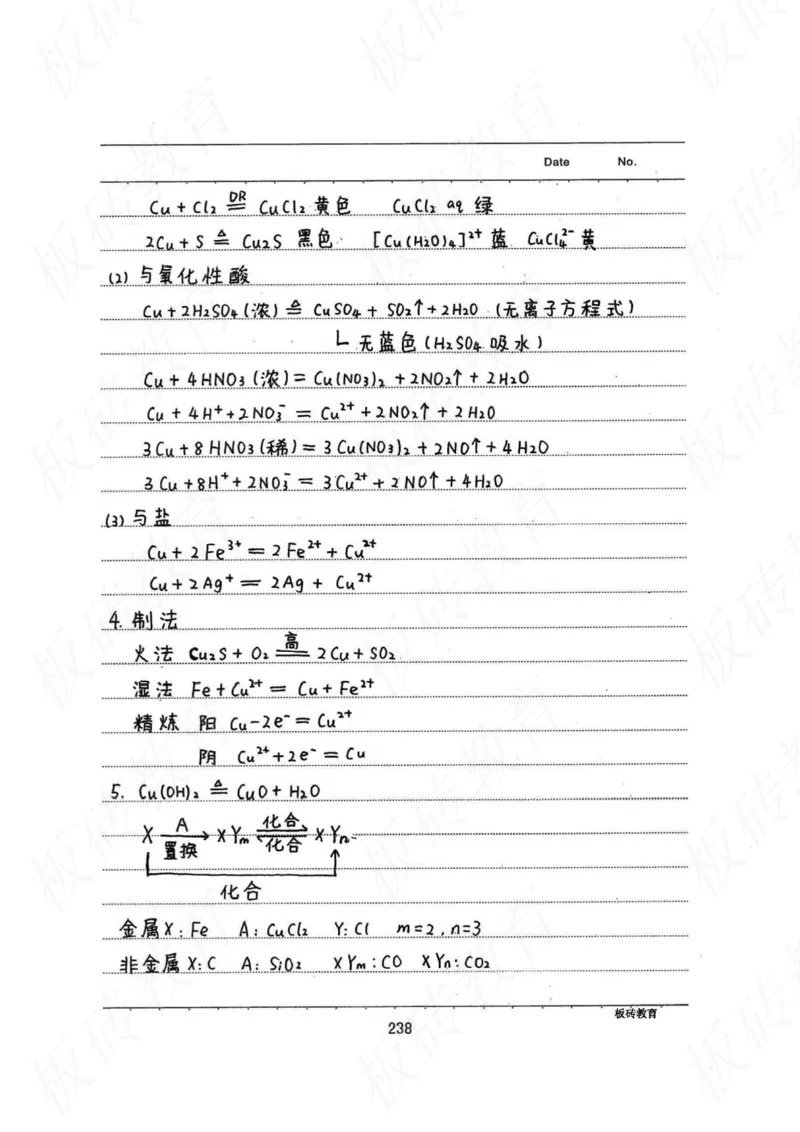 Date No.
Cu + Cl₂ =DR= CuCl₂ 黄色 CuCl₂ aq 绿
2Cu + S =△= Cu₂S 黑色 [Cu(H₂O)₄]²⁺ 蓝 CuCl₄²⁻ 黄
(2) 与氧化性酸
Cu + 2H₂SO₄ (浓) =△= CuSO₄ + SO₂↑ + 2H₂O (无离子方程式)
└ 无蓝色 (H₂SO₄ 吸水)
Cu + 4HNO₃ (浓) = Cu(NO₃)₂ + 2NO₂↑ + 2H₂O
Cu + 4H⁺ + 2NO₃⁻ = Cu²⁺ + 2NO₂↑ + 2H₂O
3Cu + 8HNO₃ (稀) = 3Cu(NO₃)₂ + 2NO↑ + 4H₂O
3Cu + 8H⁺ + 2NO₃⁻ = 3Cu²⁺ + 2NO↑ + 4H₂O
(3) 与盐
Cu + 2Fe³⁺ = 2Fe²⁺ + Cu²⁺
Cu + 2Ag⁺ = 2Ag + Cu²⁺
4. 制法
火法 Cu₂S + O₂ =高= 2Cu + SO₂
湿法 Fe + Cu²⁺ = Cu + Fe²⁺
精炼 阳 Cu - 2e⁻ = Cu²⁺
阴 Cu²⁺ + 2e⁻ = Cu
5. Cu(OH)₂ =△= CuO + H₂O
X A 置换 → XYm 化合 ⇌ 化合 XYn
化合
金属X: Fe A: CuCl₂ Y: Cl m=2, n=3
非金属 X: C A: SiO₂ XYm: CO XYn: CO₂
板砖教育
238